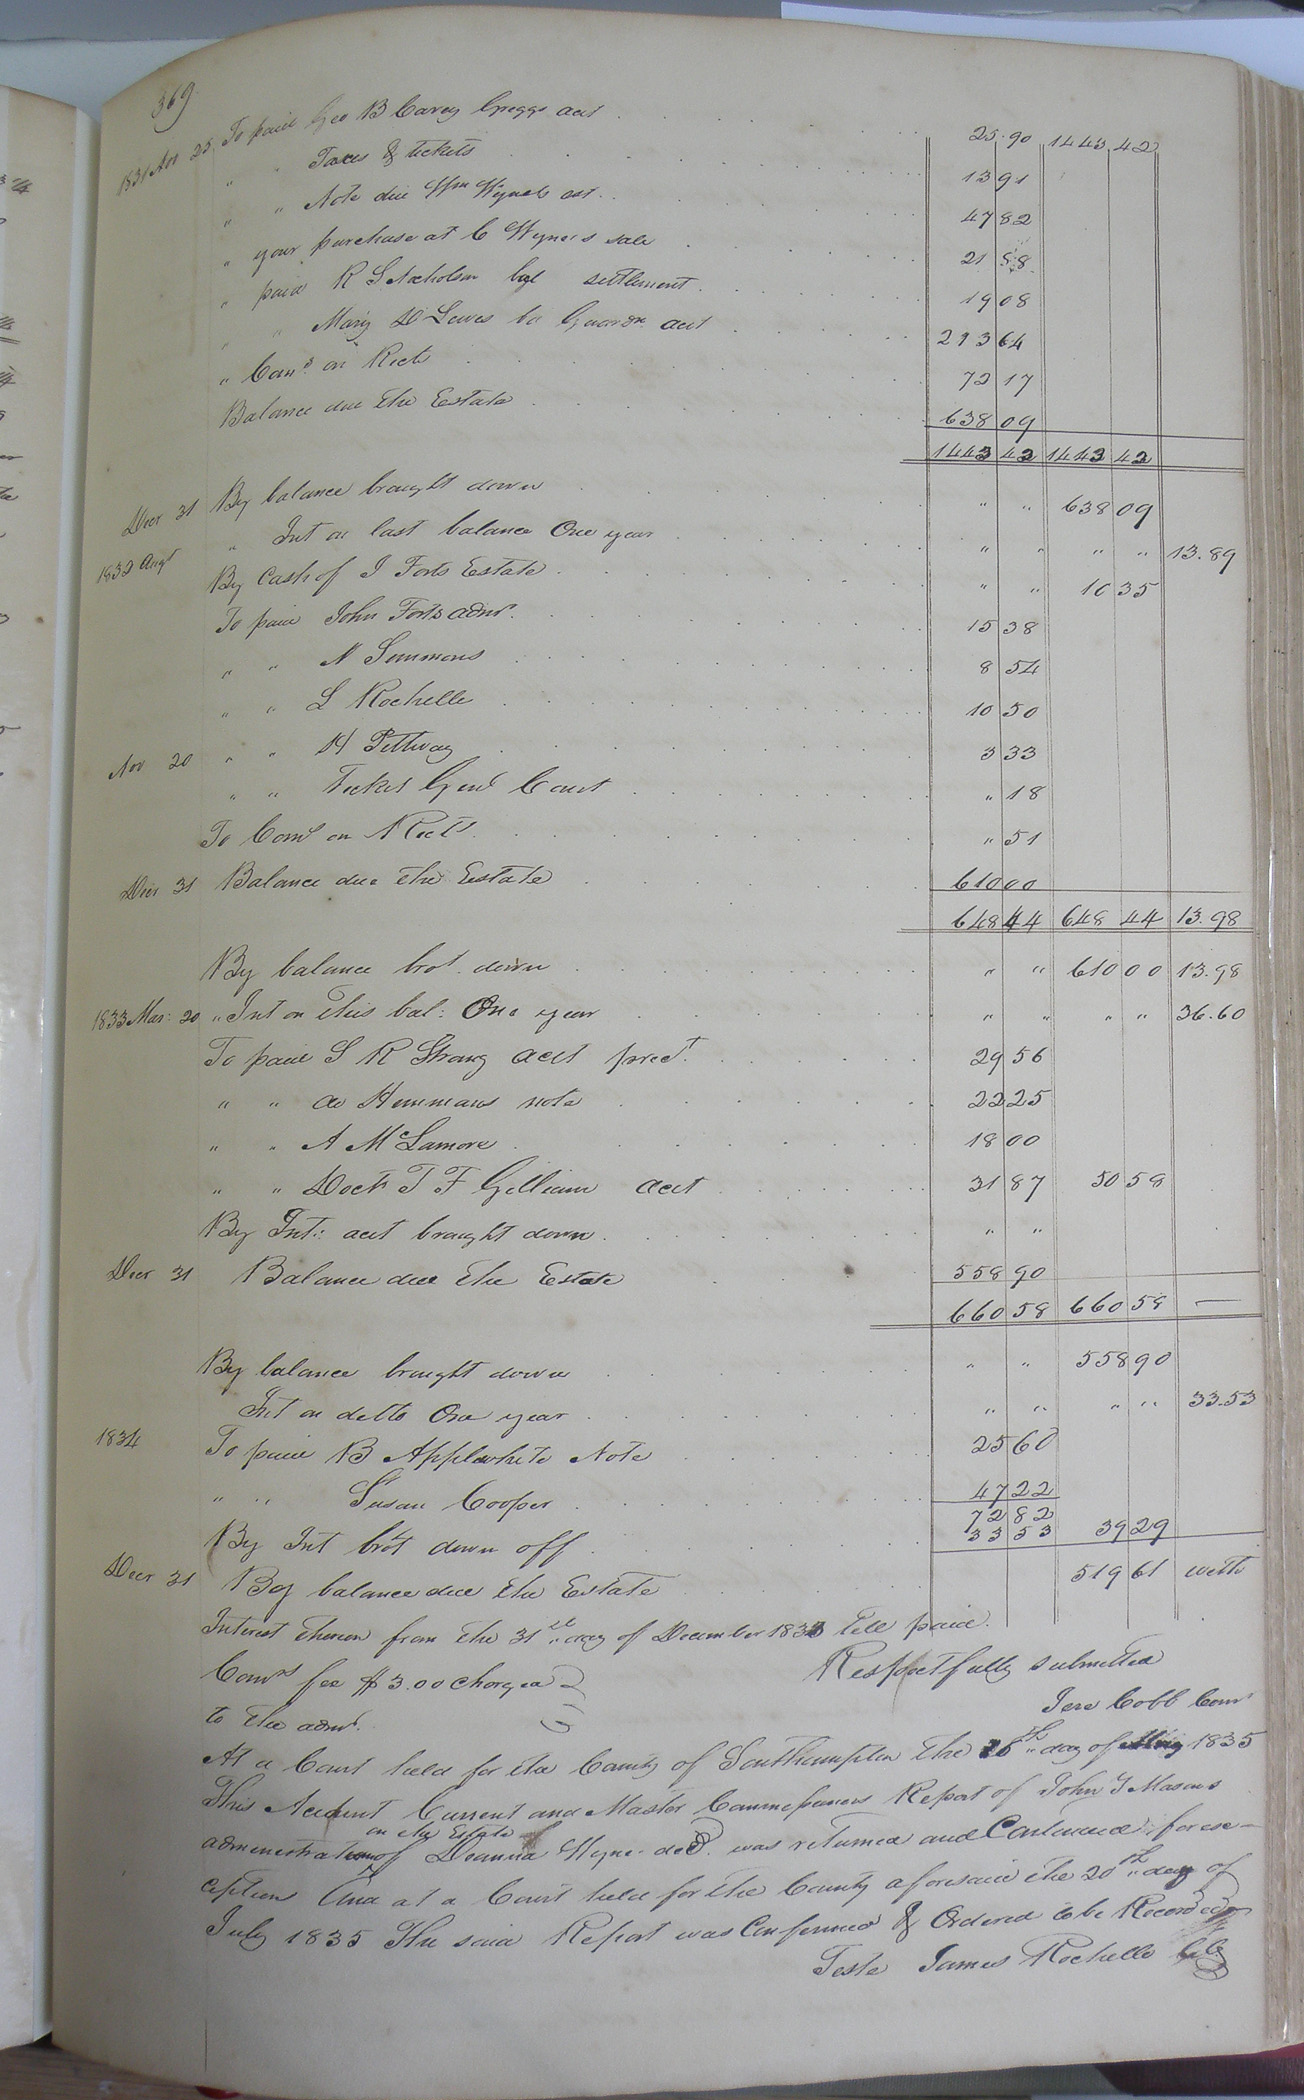 369
1831 Nov 25 To paid Geo B Carey Greggs acct 25.90 1443 42
" " Taxes & tickets 13 91
" " Note due Wm Wynes est. 47 82
" your purchase at C Wynes sale 21 58
" paid R S Nicholson bal settlement 19 08
" " Mary D Lewis by Guardn acct 293 64
" Coms on Rects 72 17
Balance due the Estate 638 09
1443 42 1443 42
Decr 31 By balance brought down " " 638 09
" Int on last balance One year " " " " 13.89
1832 Augt By Cash of J Forts Estate " " 10 35
To paid John Forts admr. 15 38
" " N Simmons 8 54
" " L Rochelle 10 50
Nov 20 " " H Pettway 3 33
" " Ticket Genl Court " 18
To Coms on Rects " 51
Decr 31 Balance due the Estate 610 00
648 44 648 44 13.98
By balance brot. down " " 610 00 13.98
1833 Mar: 20 " Int on this bal: One year " " " " 36.60
To paid S R Strang acct prect. 29 56
" " do Hemmans note 22 25
" " A McLamore 18 00
" " Doctr T F Gilliam acct 31 87 50 58
By Int: acct brought down " "
Decr 31 Balance due the Estate 558 90
660 58 660 58 —
By balance brought down " " 558 90
Int on ditto One year " " " " 33.53
1834 To paid B Applewhite Note 25 60
" " Susan Cooper 47 22
72 82
By Int brot down off 33 53 39 29
Decr 31 By balance due the Estate 519 61 with
Interest thereon from the 31st day of December 183 till paid.
Coms fee $3.00 charged Respectfully submitted
to the admr. Jere Cobb Comr
At a Court held for the County of Southampton the 16th day of May 1835
This Account Current and Master Commissioners Report of John Y Masons
on the Estate
administration of Deanna Wyne decd. was returned and Continued for ex-
ception And at a Court held for the County aforesaid the 20th day of
July 1835 The said Report was Confirmed & Ordered to be Recorded
Teste James Rochelle Clk